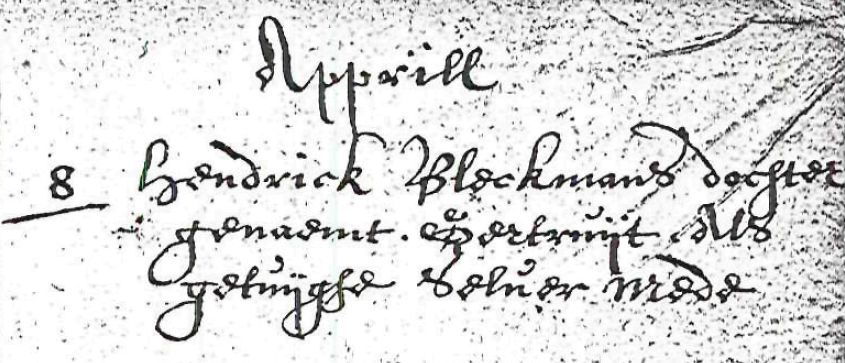 Apprill
8 Hendrick Bleckmans dochter
genaemt. Gertruijt. Als
getuijghe Seluer mede